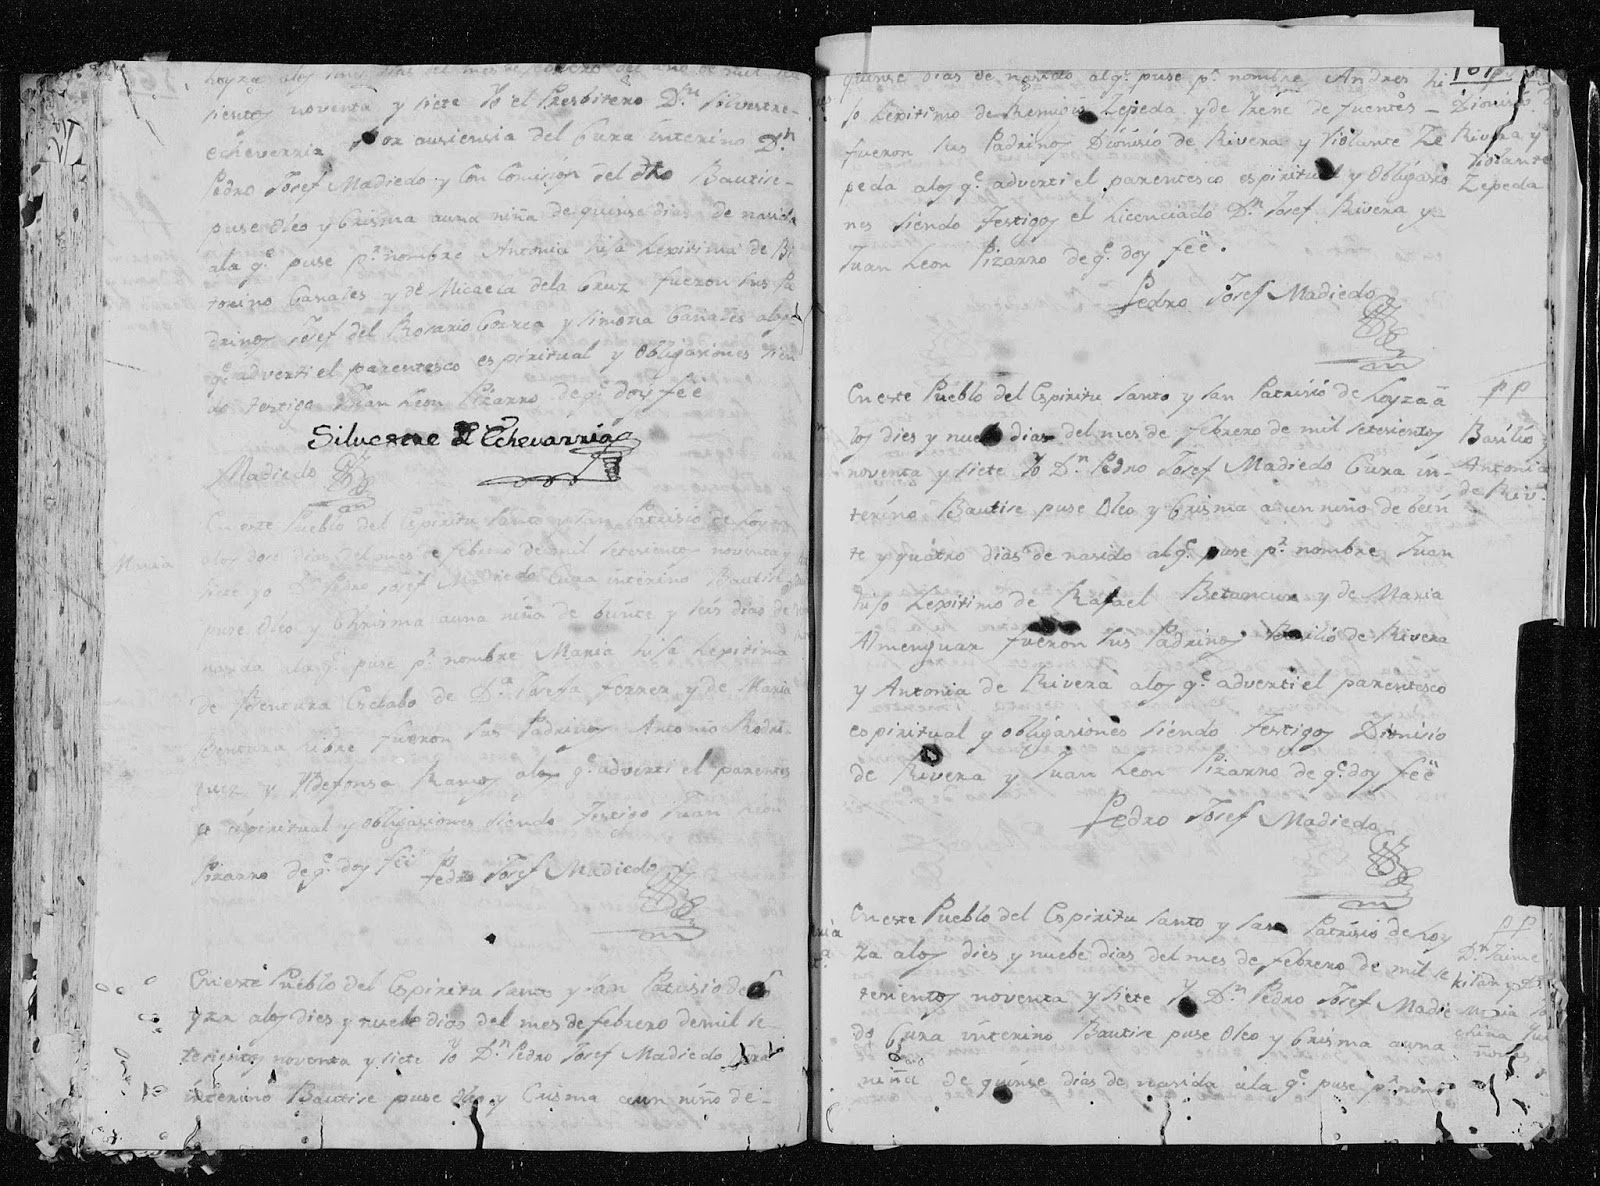 siento, noventa y siete Yo el Presbitero Dn. Silvestre
echeverria Por ausiensia del Cura interino Dn
Pedro Josef Madiedo y Con Comisión del dho Bautise
puse Oleo y Crisma auna niña de quinse dias de nasida
ala qe. puse pr. nombre Antonia hija Lexitima de
torino Canales y de Micaela dela Cruz fueron sus Pa
drinos Josef del Rosario Correa y Simona Canales alos
qe. adverti el parentesco espiritual y Obligasiones sien
do testigo Juan Leon Pizarro de qe. doy feé
Silvestre de Echevarria
Madiedo
En este Pueblo del Espiritu Santo y San Patrisio de Loyza
Maria
alos dose dias del mes de febrero de mil setesientos noventa y
siete yo Dn. Pedro Josef Madiedo Cura interino Bautise
puse Oleo y Chrisma auna niña de beinte y seis dias de
nasida ala qe. puse pr. nombre Maria hija Lexitima
de Bentura Esclabo de Da. Josefa Ferrer y de Maria
Bentura libre fueron sus Padrinos Antonio Rodri
guez y Yldefonsa Ramos alos qe. adverti el parentes
co espiritual y obligasiones siendo Testigo Juan León
Pizarro de qe. doy feé Pedro Josef Madiedo
En este Pueblo del Espiritu Santo y San Patrisio de Lo
yza alos dies y nuebe dias del mes de febrero de mil se
tesientos noventa y siete Yo Dn. Pedro Josef Madiedo Cura
interino Bautise puse Oleo y Crisma aun niño de
161
quinse dias de nasido al qe. puse pr. nombre Andres hi
jo Lexitimo de Remigio Zepeda y de Yrene de Fuentes
fueron sus Padrinos Dionisio de Rivera y Violante Ze
peda alos qe. adverti el parentesco espiritual y Obligasio
nes siendo Testigos el Licenciado Dn. Josef Rivera y
Juan Leon Pizarro de qe. doy feé.
Dionisio d
Rivera y
Violante
Zepeda
Pedro Josef Madiedo
En este Pueblo del Espiritu Santo y San Patrisio de Loyza a
los dies y nuebe dias del mes de febrero de mil setesientos
noventa y siete Yo Dn. Pedro Josef Madiedo Cura in
terino Bautise puse Oleo y Crisma a un niño de bein
te y quatro dias de nasido al qe. puse pr. nombre Juan
hijo Lexitimo de Rafael Betancur y de Maria
Almenguar fueron sus Padrinos Basilio de Rivera
y Antonia de Rivera alos qe. adverti el parentesco
espiritual y obligasiones siendo Testigos Dionisio
de Rivera y Juan Leon Pizarro de qe. doy feé
pp
Basilio y
Antonia
de Riv.
Pedro Josef Madiedo
En este Pueblo del Espiritu Santo y San Patrisio de Loy
za alos dies y nuebe dias del mes de febrero de mil se
tesientos noventa y siete Yo Dn. Pedro Josef Madie
do Cura interino Bautise puse Oleo y Crisma auna
niña de quinse dias de nasida ala qe. puse pr. nom
pp
Dn. Jaime
Maria